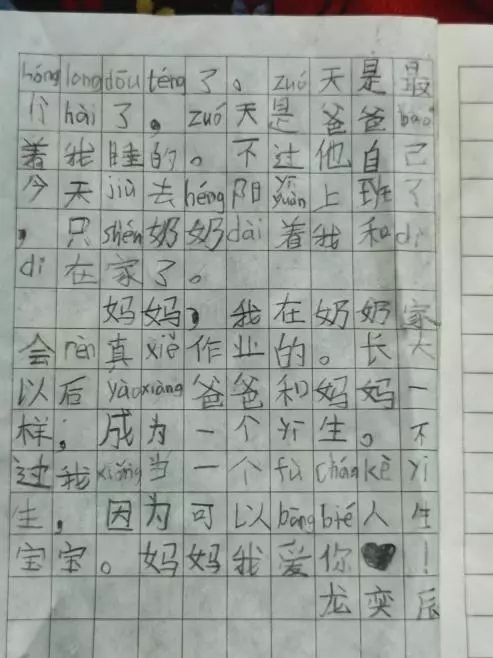 hóng long dōu téng了。zuó天是最
付hài了。zuó天是爸爸bào
着我睡的。不过他自己
今天jiù去héng阳yī yuàn上班了
，只shèn奶奶dài着我和dì
di在家了。
妈妈，我在奶奶家
会rèn真xiě作业的。长大
以后yào xiàng爸爸和妈妈一
样，成为一个yī生。不
过我xiǎng当一个fù chǎn kē yī
生，因为可以bāng bié人生
宝宝。妈妈我爱你！
龙奕辰